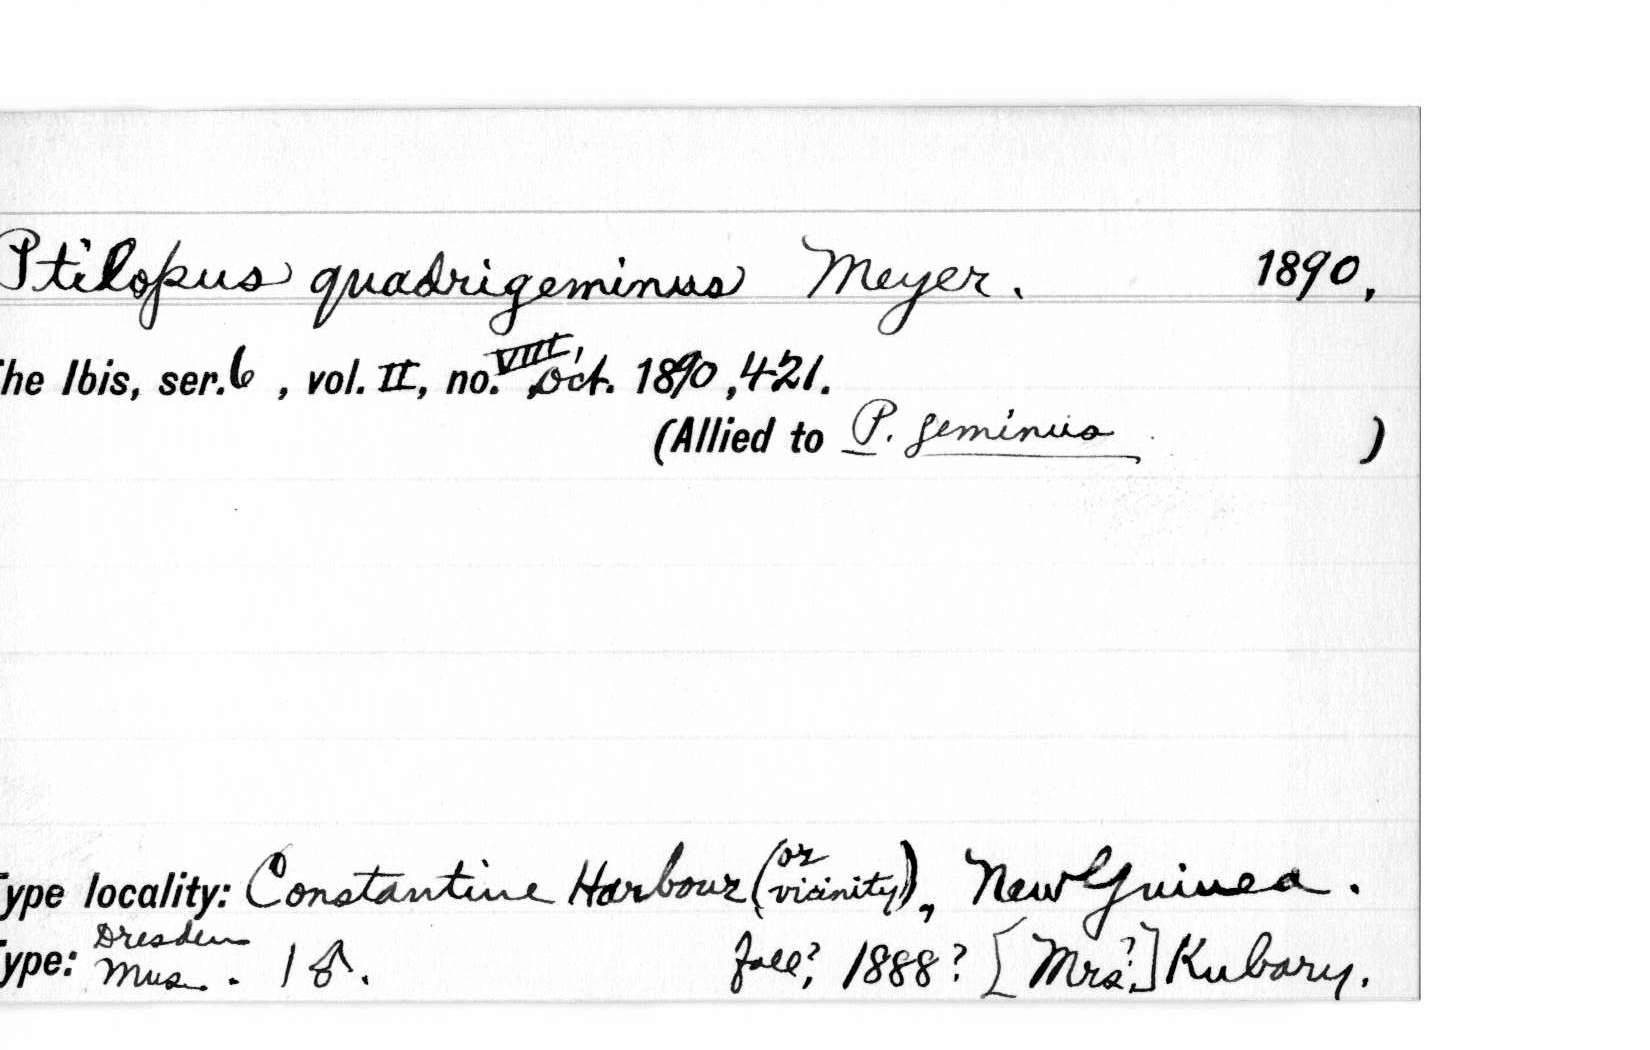 Ptilopus quadrigeminus Meyer. 1890,
he Ibis, ser. 6, vol. II, no. VIII, Oct. 1890, 421.
(Allied to P. geminus )
ype locality: Constantine Harbour (or vicinity), New Guinea.
ype: Dresden Mus. 1 ♂. fall? 1888? [Mrs?] Kubary.